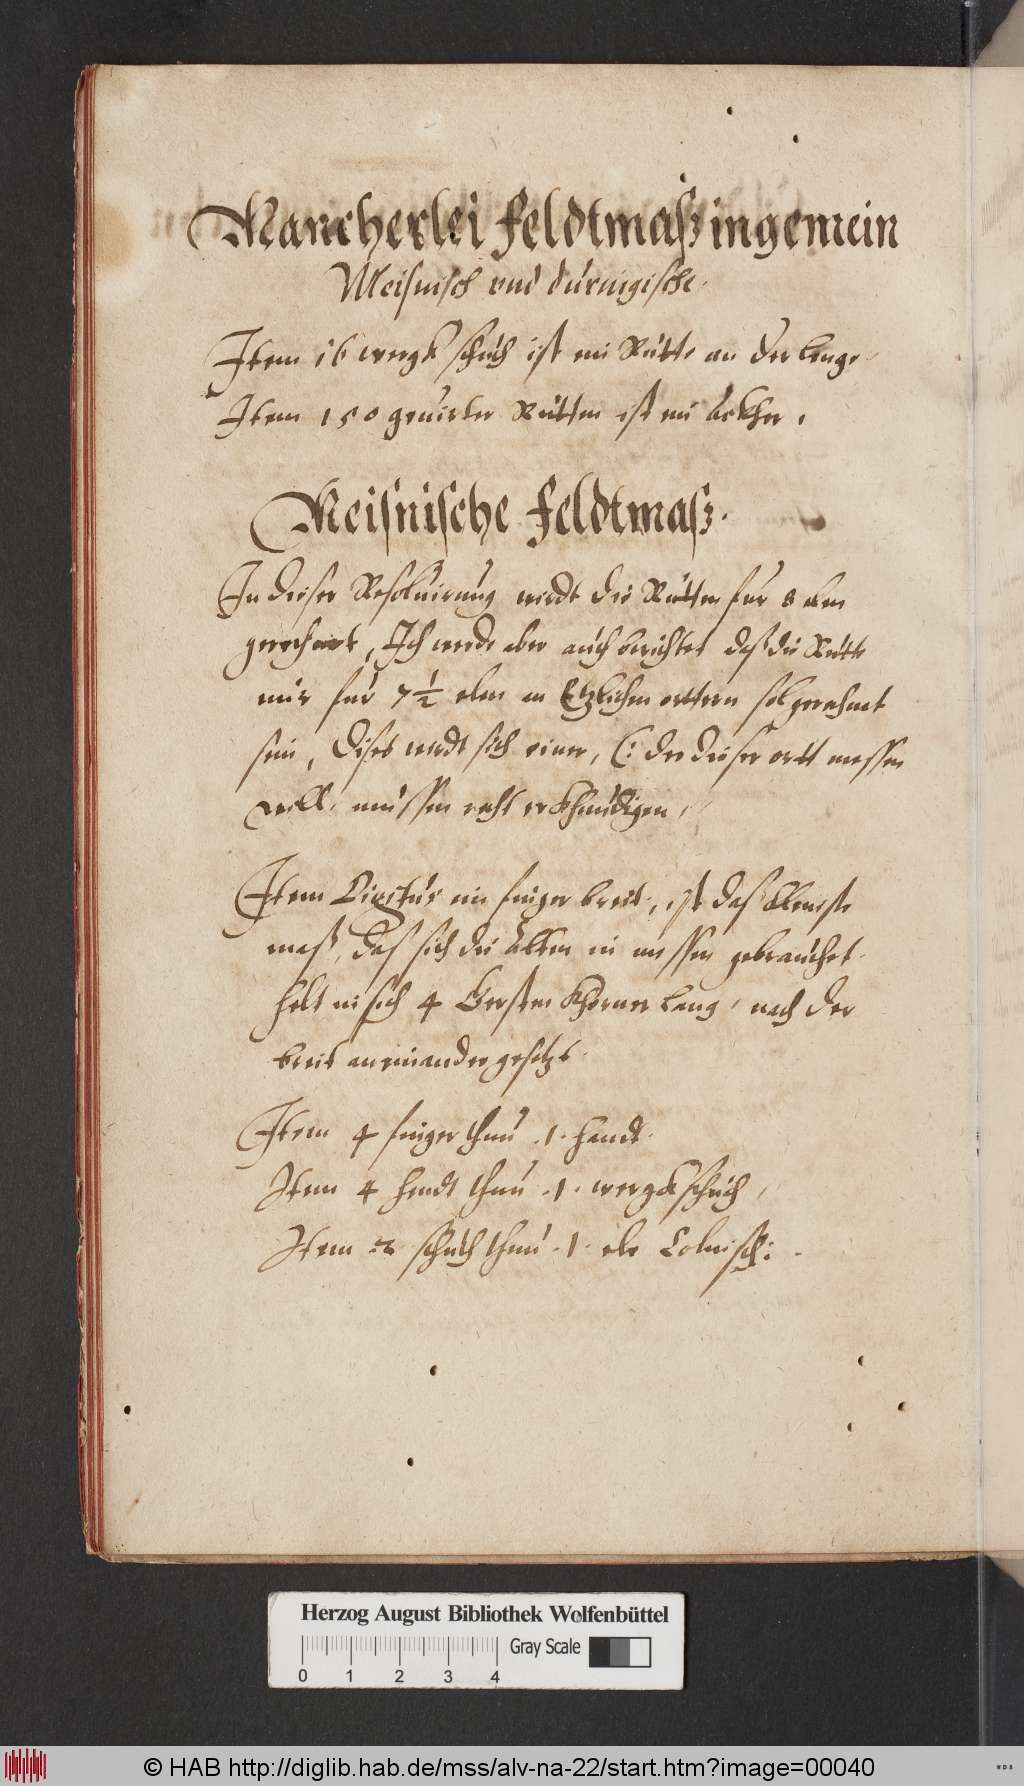 Mancherlei feldtmaß in gemein
Meisnisch vnd durnigische.
Item 16 wergk schuch ist ein Rutte an der lenge.
Item 150 geuirter Rutten ist ein ackher.
Meisnische feldtmaß.
In dieser Resoluirung wirdt die Rutten fur 8 elen
gerechnet, Ich werde aber auch berichtet daß die Rutte
nur fur 7 1/2 elen an Etzlichen orttern sol gerechnet
sein, dises wirdt sich einer, (: der dieser ortt messen
will, mussen recht erkhundigen,
Item Digitus ein finger breit, ist daß kleinste
maß, das sich die alten in messen gebrauchet.
helt in sich 4 Gersten Khorner lang, nach der
breit an einander gesetzt.
Item 4 finger thun .1. handt.
Item 4 hendt thun .1. wergkschuch,
Item 2 schuch thun .1. ele Colnisch:
Herzog August Bibliothek Wolfenbüttel
0 1 2 3 4
Gray Scale
© HAB http://diglib.hab.de/mss/alv-na-22/start.htm?image=00040